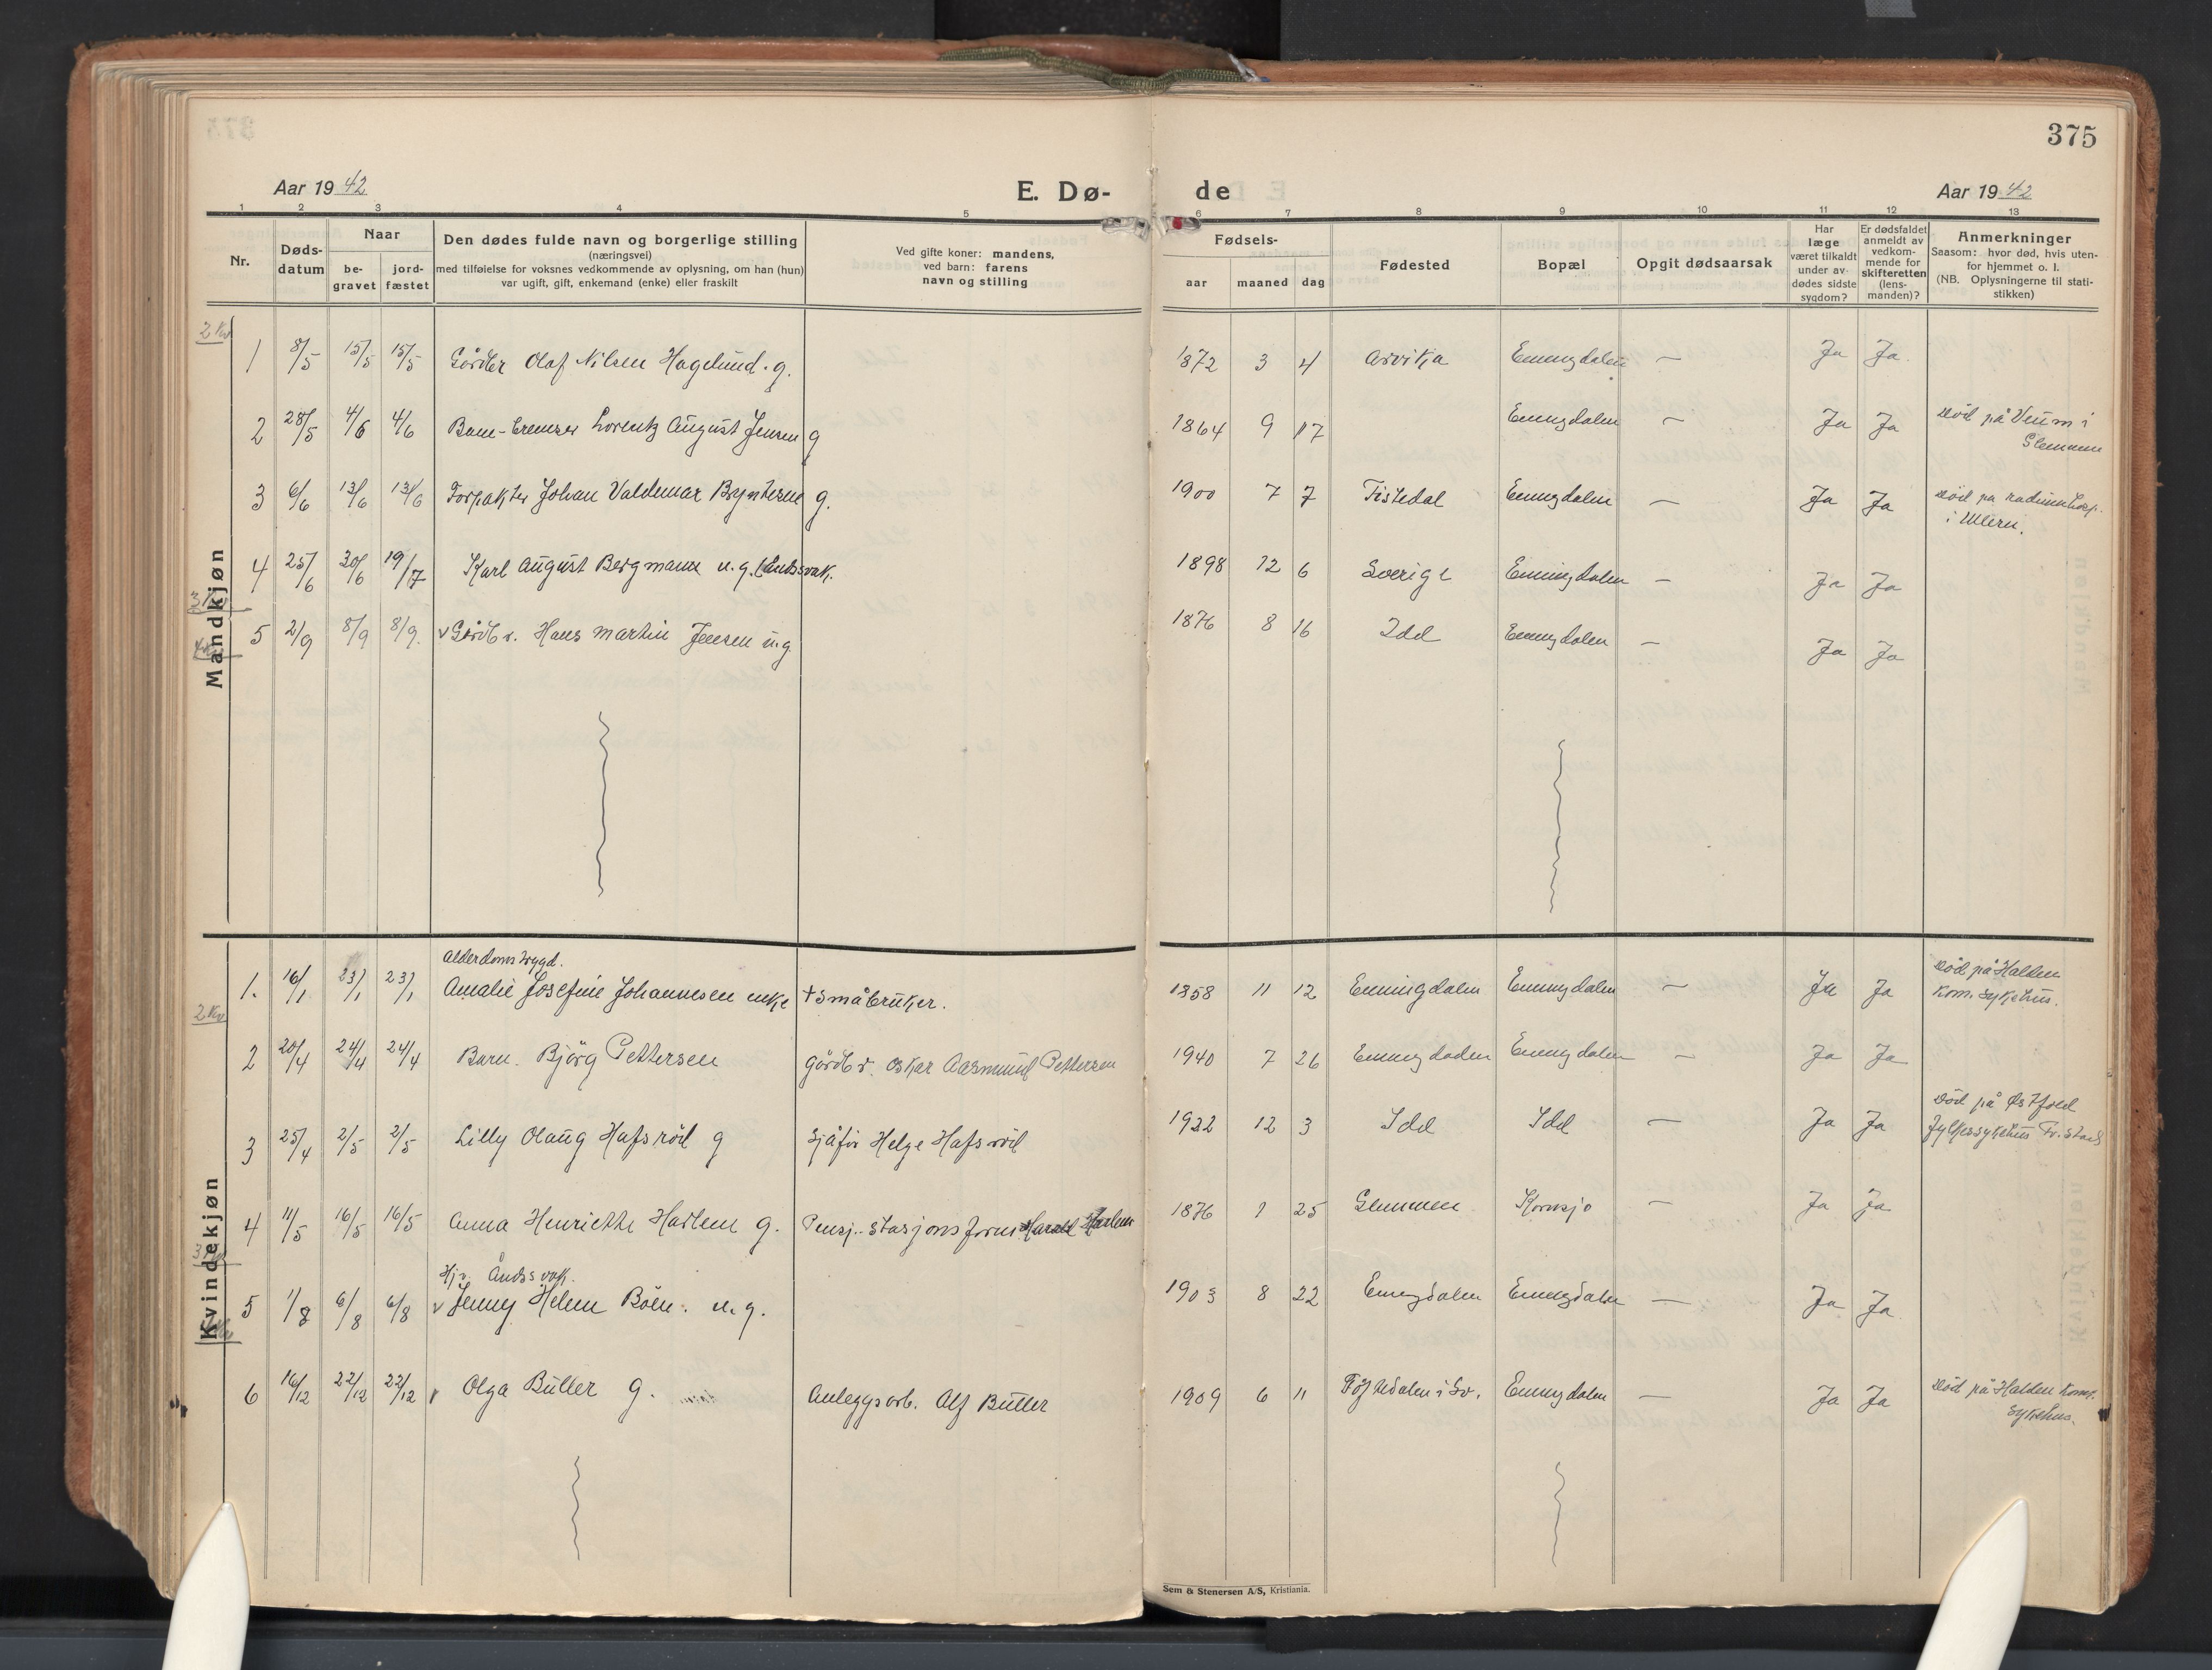 375
Aar 19 42
E. Dø-
de
Aar 19 42
1 2 3 4 5 6 7 8 9 10 11 12 13
Nr.
Døds-
datum
Naar
be-
gravet
jord-
fæstet
Den dødes fulde navn og borgerlige stilling
(næringsvei)
med tilføielse for voksnes vedkommende av oplysning, om han (hun)
var ugift, gift, enkemand (enke) eller fraskilt
Ved gifte koner: mandens,
ved barn: farens
navn og stilling
Fødsels-
aar maaned dag
Fødested
Bopæl
Opgit dødsaarsak
Har
læge
været tilkaldt
under av-
dødes sidste
sygdom?
Er dødsfaldet
anmeldt av
vedkom-
mende for
skifteretten
(lens-
manden)?
Anmerkninger
Saasom: hvor død, hvis uten-
for hjemmet o. l.
(NB. Oplysningerne til stati-
stikken)
Mandkjøn
2 Kv
1 8/5 15/5 15/5 Gårdbr Olaf Nilsen Hagelund. g. 1872 3 4 Arvika Enningdalen — Ja Ja.
2 28/5 4/6 4/6 Bane-bremser Lorentz August Jensen g 1864 9 17 Enningdalen — Ja Ja Död på Veum i
Glemmen
3 6/6 13/6 13/6 Forpakter Johan Valdemar g. 1900 7 7 Tistedal Enningdalen — Ja Ja Död på radiumhosp.
i Ullern.
4 25/6 30/6 19/7 Karl August Bergmann u.g. 1898 12 6 Sverige Enningdalen — Ja Ja
3 Kv
5 2/9 8/9 8/9. v Gårdbr. Hans Martin Jensen u.g 1876 8 16 Idd Enningdalen — Ja Ja
4 Kv
Kvindekjøn
Alderdomstrygd.
1. 16/1 23/1 23/1 Amalie Josefine Johannesen enke † småbruker. 1858 11 12 Enningdalen Enningdalen — Ja Ja Död på Halden
Kom. sykehus.
2 Kv
2 20/4 24/4 24/4 Barn. Björg Pettersen Gårdbr. Oskar Aasmund Pettersen 1940 7 26 Enningdalen Enningdalen — Ja Ja
3 25/4 2/5 2/5 Lilly Olaug Hafsröd g Sjåför Helge Hafsröd 1922 12 3 Idd Idd — Ja Ja Död på Østfold
Fylkessykehus Fr.stad
4 11/5 16/5 16/5 Anna Henriette Harlem g. Pensj. stasjonsform Harald Harlem 1876 1 25 Glemmen Kornsjö — Ja Ja
3 Kv
Hjv. Åndssvak.
5 1/8 6/8 6/8 v Jenny Helene Böen. u.g. 1903 8 22 Enningdalen Enningdalen — Ja Ja
6 16/12 22/12 22/12 v Olga Buller g. Anleggsarb. Alf Buller 1909 6 11 i Sv. Enningdalen — Ja Ja Död på Halden Kom.
sykehus.
Sem & Stenersen A/S, Kristiania.